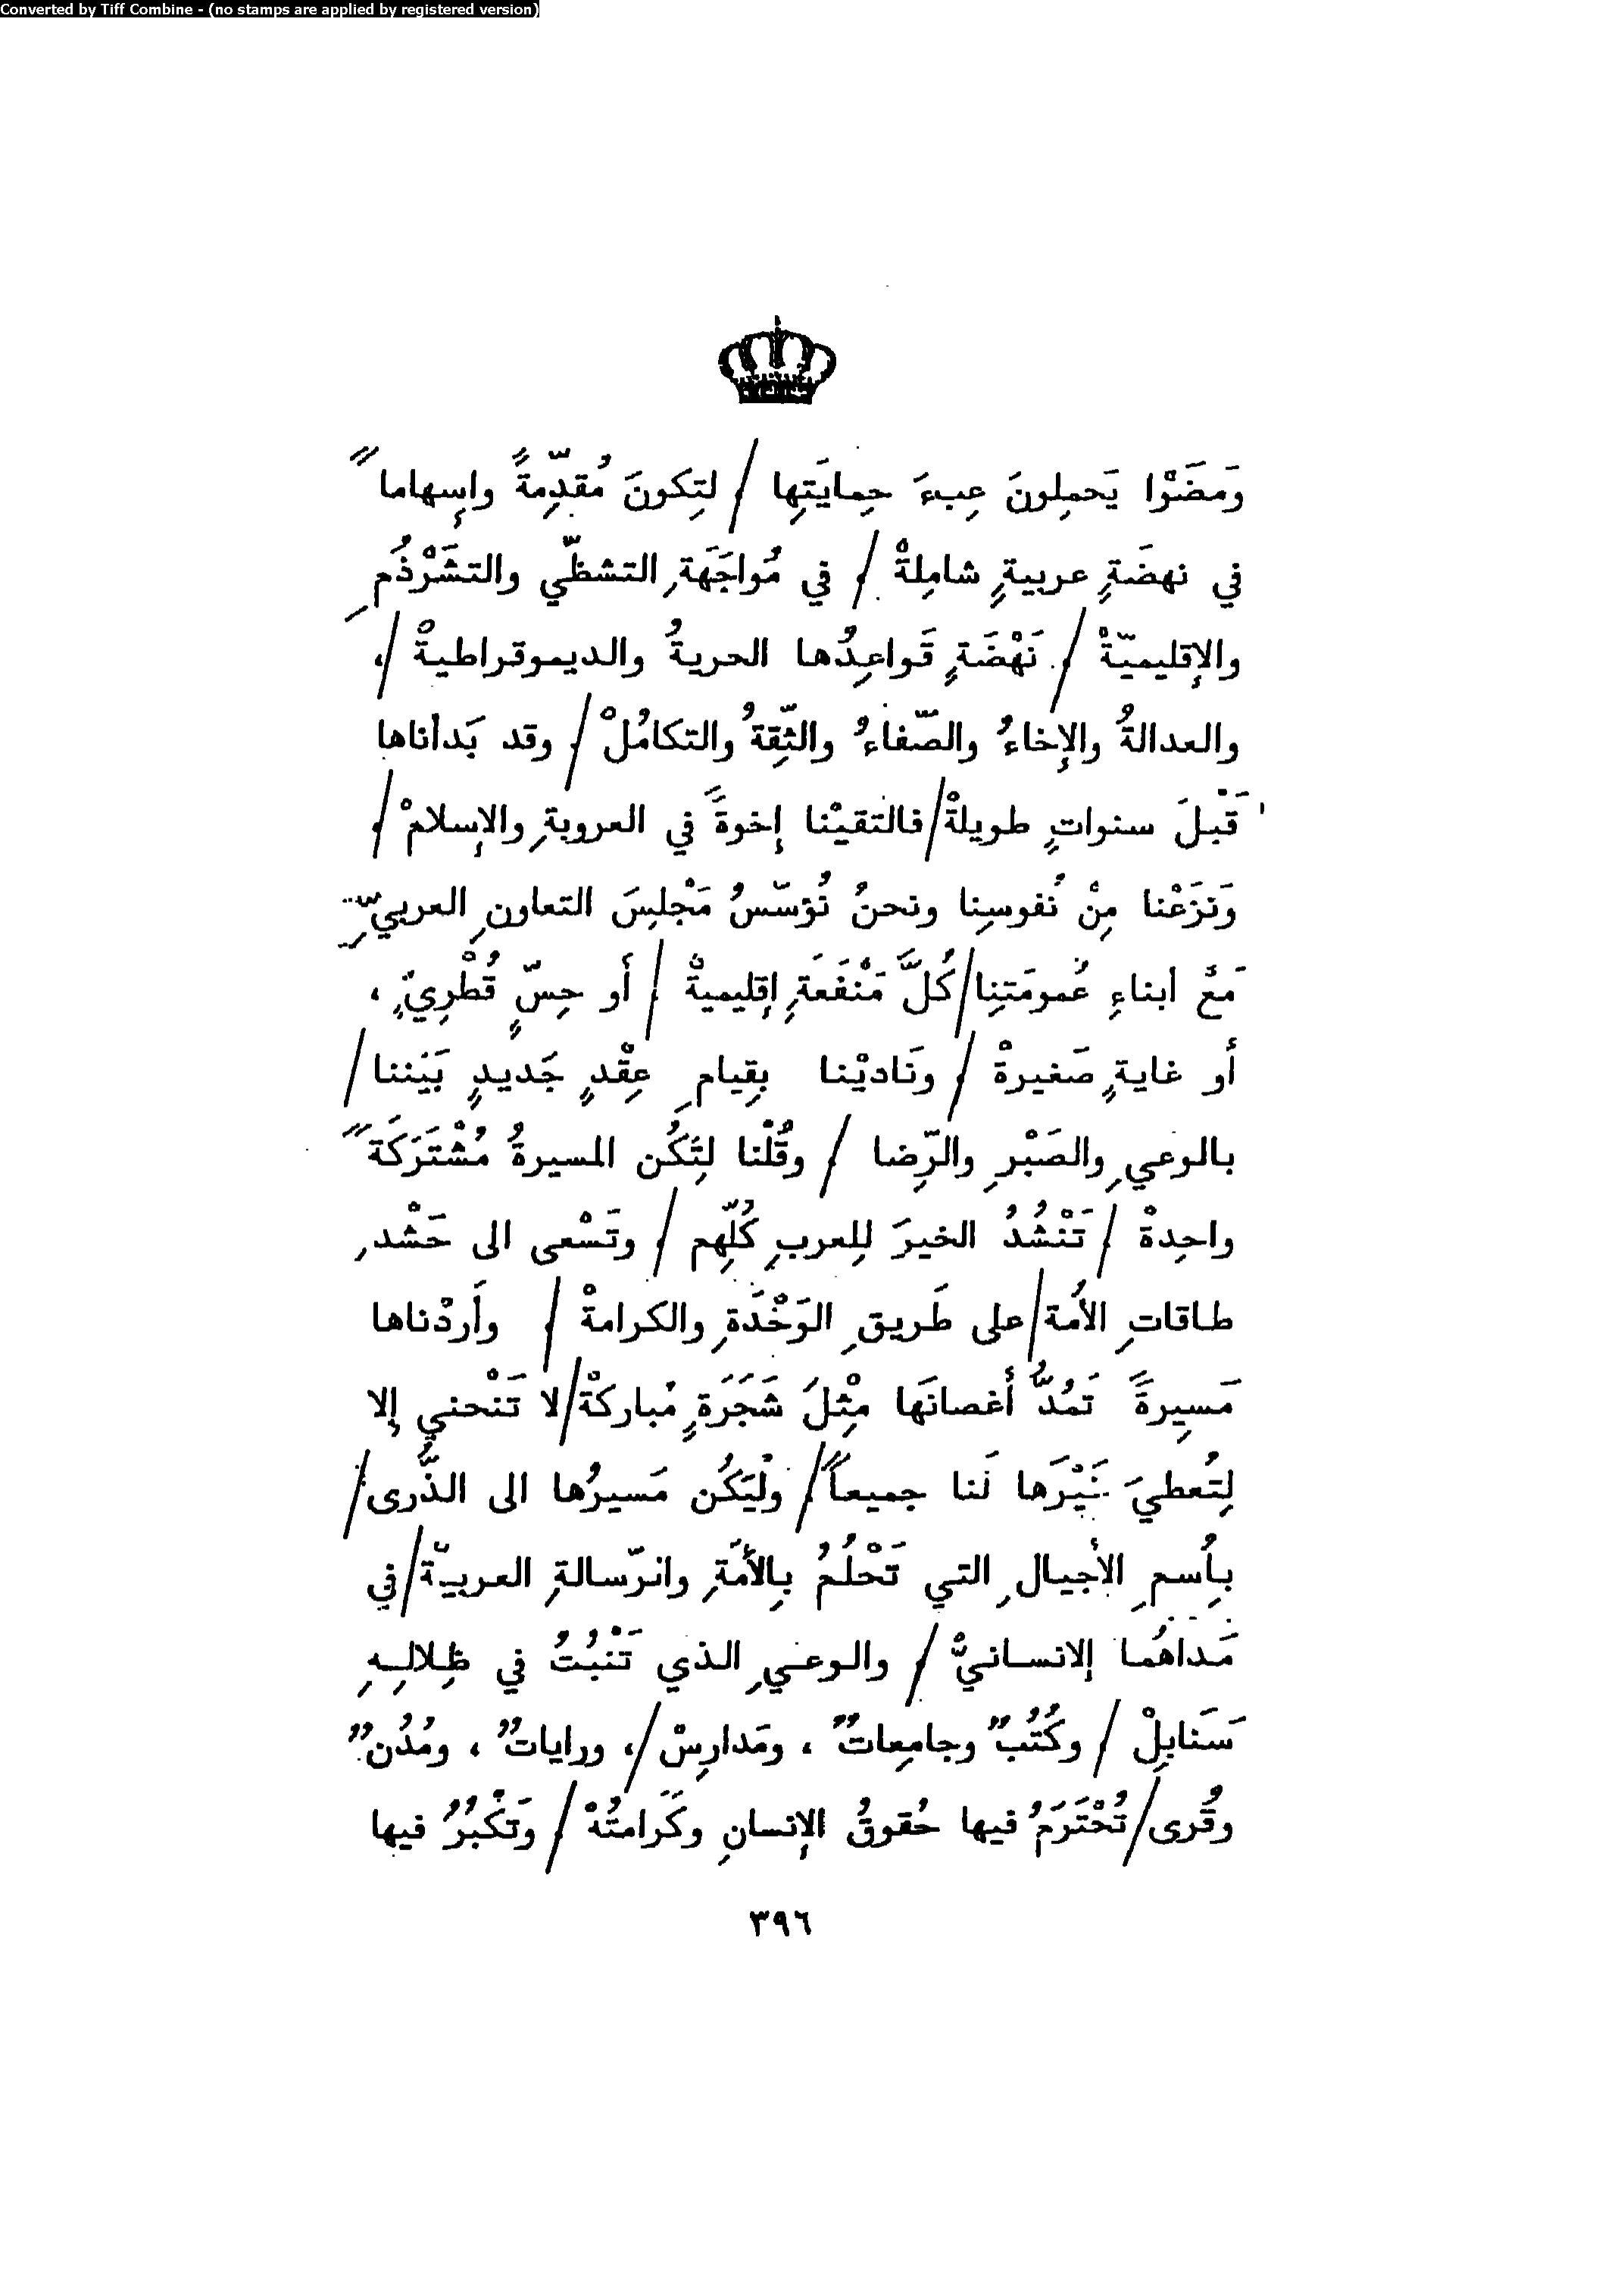 Converted by Tiff Combine - (no stamps are applied by registered version)
وَمَضَوْا يَحمِلونَ عِبءَ حِمايَتِها / لتِكونَ مُقدّمِةً وإسِهاما ً
في نهضَةٍ عربيةٍ شامِلةْ / في مُواجَهَةِ التشظّي والتشَرْذُمِ
والإقليميّةْ / نَهْضَةٍ قَواعِدُها الحريةُ والديموقراطيةْ /،
والعدالةُ والإخاءُ والصّفاءُ والثِّقةُ والتكامُلْ / وقد بَدأناها
قَبْلَ سنواتٍ طويلةْ / فالتقيْنا إخوةً في العروبةِ والإسلامْ /
وَنَزَعْنا مِنْ نُفوسِنا ونحنُ نُؤسّسُ مَجْلِسَ التعاونِ العربيِّ
مَعَ أبناءِ عُمومَتِنِا / كُلَّ مَنْفَعَةٍ إقليميةْ / أَو حِسٍّ قُطْرِيٍّ ،
أو غايةٍ صَغيرةْ / ونَاديْنا بِقيامِ عِقْدٍ جَديدٍ بَيْننا /
بالوعيِ والصَبْرِ والرِّضا / وقُلْنا لِتَكُن المسيرةُ مُشْتَرَكَة ً
واحِدةْ / تَنْشُدُ الخيرَ لِلعربِ كُلِّهِم / وتَسْعى الى حَشْدِ
طاقاتِ الأمُة / على طَريقِ الوَحْدَةِ والكرامةْ / وأَردْناها
مَسيِرةً تَمُدُّ أغصانَها مِثْلَ شَجَرَةٍ مُباركةْ / لا تَنْحني إلا
لِتُعطيَ خَيْرَها لَنا جميعاً / ولْيَكُن مَسيرُها الى الذُّرى /
بِأسمِ الأجيالِ التي تَحْلُمُ بِالأمّةِ وانرّسالةِ العربيّة / في
مَداهُما إلانسانيّْ / والوعيِ الذي تَنْبُتُ في ظِلالِهِ
سَنابِلْ / وكُتُبٌ وجامِعاتٌ ، ومَدارِسْ /، وراياتٌ ، ومُدُن ٌ
وقُرى / تُحْتَرَمُ فيها حُقوقُ الإنسانِ وكَرامتُهْ / وَتكْبُرُ فيها
٣٩٦